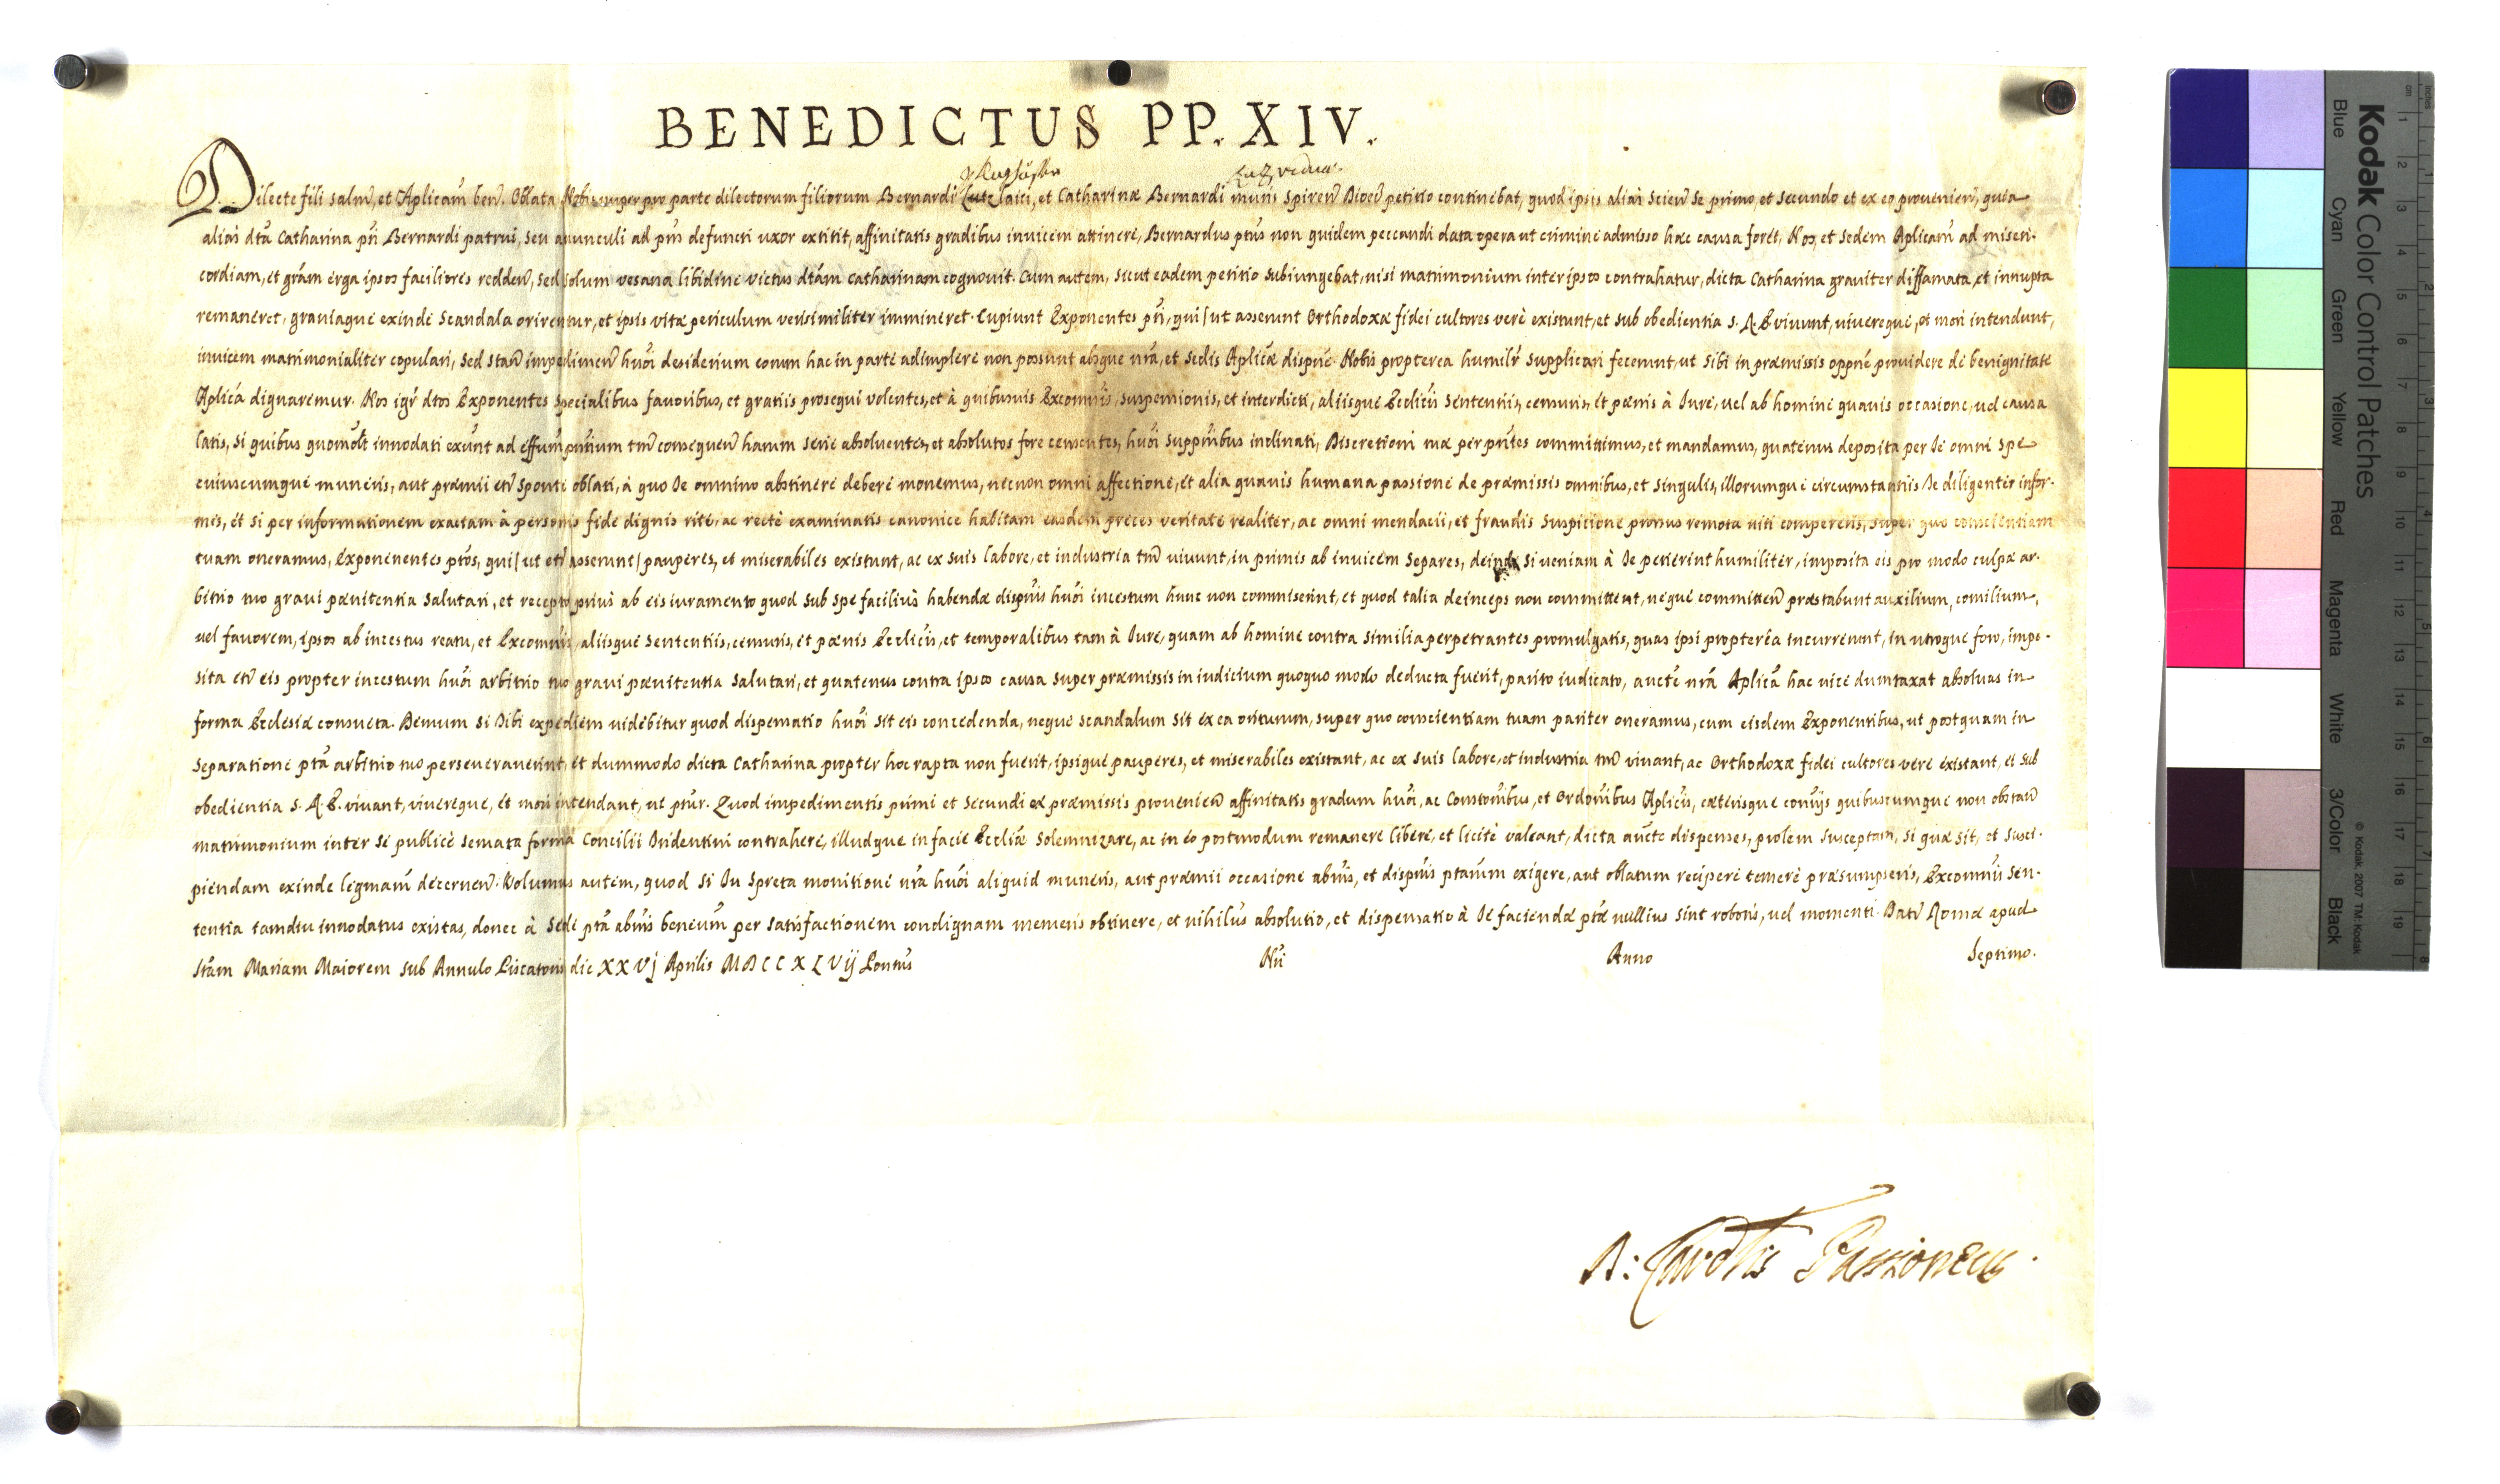 BENEDICTUS PP. XIV.
Lutz vidua
Dilecte fili salm̃, et Aplicam̃ ben̄. Oblata Nobis nuper pro parte dilectorum filiorum Bernardi Lutz laici, et Catharinæ Bernardi muris Spiren̄ Dioec̄ petitio continebat, quod ipsis alias scien̄ se primo, et secundo et ex eo provenien̄, quia
alias dtã Catharina pñ Bernardi patrui, seu avunculi ad pñs defuncti uxor extitit, affinitatis gradibus invicem attinere, Bernardus ptus non quidem peccandi data opera ut crimine admisso hac causa foret, Nos, et Sedem Aplicam̃ ad miseri-
cordiam, et grãm erga ipsos faciliores redden̄, sed solum vesana libidine victus dtãm Catharinam cognovit. Cum autem, sicut eadem petitio subiungebat, nisi matrimonium inter ipsos contrahatur, dicta Catharina graviter diffamata et innupta
remaneret, graviaque exinde scandala orirentur, et ipsis vitæ periculum verisimiliter immineret. Cupiunt Exponentes pñ, qui/ut asserunt Orthodoxæ fidei cultores verè existunt, et sub obedientia S. R. E. vivunt, vivereque, et mori intendunt,
invicem matrimonialiter copulari, sed stan̄ impedimen̄ huõi desiderium eorum hac in parte adimplere non possunt absque nrã, et Sedis Aplicæ dispñe. Nobis propterea humilr̃ supplicari fecerunt, ut sibi in præmissis oppñe providere de benignitate
Aplicã dignaremur. Nos igr̃ dtos Exponentes specialibus favoribus, et gratiis prosequi volentes, et à quibusvis Excomnis, suspensionis, et interdicti, aliisque Ecclicis sententiis, censuris, et pœnis à Iure, vel ab homine quavis occasione, vel causa
latis, si quibus quomõlt innodati exũnt ad effum̃ pñtium tm̃ consequen̄ harum serie absolventes, et absolutos fore censentes, huõi suppñibus inclinati, Discretioni tuæ per pñtes committimus, et mandamus, quatenus deposita per Te omni spe
cuiuscumque muneris, aut præmii etr̃ sponte oblati, à quo Te omnino abstinere debere monemus, necnon omni affectione, et alia quavis humana passione de præmissis omnibus, et singulis, illorumque circumstantiis Te diligenter infor-
mes, et si per informationem exactam à personis fide dignis rite, ac recte examinatis canonice habitam easdem preces veritate realiter, ac omni mendacii, et fraudis suspicione prorsus remota niti compereris, super quo conscientiam
tuam oneramus, Exponenentes ptõs, qui/ut etr̃ asserunt/pauperes, et miserabiles existunt, ac ex suis labore, et industria tm̃ vivunt, in primis ab invicem separes, deinde si veniam à Te petierint humiliter, imposita eis pro modo culpæ ar-
bitrio tuo gravi pœnitentia salutari, et recepto prius ab eis iuramento quod sub spe facilius habendæ dispñis huõi incestum hunc non commiserint, et quod talia deinceps non committent, neque committen̄ præstabunt auxilium, consilium,
vel favorem, ipsos ab incestus reatu, et Excomnis, aliisque sententiis, censuris, et pœnis Ecclicis, et temporalibus tam à Iure, quam ab homine contra similia perpetrantes promulgatis, quas ipsi propterea incurrerunt, in utroque foro, impo-
sita etr̃ eis propter incestum huõi arbitrio tuo gravi pœnitentia salutari, et quatenus contra ipsos causa super præmissis in iudicium quoquo modo deducta fuerit, parito iudicato, auctẽ nrã Aplicã hac vice dumtaxat absolvas in
forma Ecclesiæ consueta. Demum si Tibi expediens videbitur quod dispensatio huõi sit eis concedenda, neque scandalum sit ex ea oriturum, super quo conscientiam tuam pariter oneramus, cum eisdem Exponentibus, ut postquam in
separatione ptã arbitrio tuo perseveraverint, et dummodo dicta Catharina propter hoc rapta non fuerit, ipsique pauperes, et miserabiles existant, ac ex suis labore, et industria tm̃ vivant, ac Orthodoxæ fidei cultores vere existant, et sub
obedientia S. R. E. vivant, vivereque, et mori intendant, ut pfur. Quod impedimentis primi et secundi ex præmissis provenien̄ affinitatis gradum huõi, ac Constonibus, et Ordonibus Aplicis, cæterisque conriis quibuscumque non obstan̄
matrimonium inter se publicè servata forma Concilii Tridentini contrahere, illudque in facie Eccliæ solemnizare, ac in eo postmodum remanere libere, et licite valeant, dicta aucte dispenses, prolem susceptam, si quæ sit, et susci-
piendam exinde legmam̃ decernen̄. Volumus autem, quod si Tu spreta monitione nrã huõi aliquid muneris, aut præmii occasione abnis, et dispnis ptarum exigere, aut oblatum recipere temere præsumpseris, Excomnis sen-
tentia tamdiu innodatus existas, donec à Sede ptã abnis beneum̃ per satisfactionem condignam merueris obtinere, et nihilus absolutio, et dispensatio à Te faciendæ ptæ nullius sint roboris, vel momenti. Dat̄ Romæ apud
Stam̃ Mariam Maiorem sub Annulo Piscatoris die XXVJ Aprilis MDCCXLVIJ Pontus Nri Anno Septimo.
D: Card̃lis Passioneus.
Kodak Color Control Patches
Blue Cyan Green Yellow Red Magenta White 3/Color Black
© Kodak, 2007 TM: Kodak
inches 1 2 3 4 5 6 7 8
cm 1 2 3 4 5 6 7 8 9 10 11 12 13 14 15 16 17 18 19